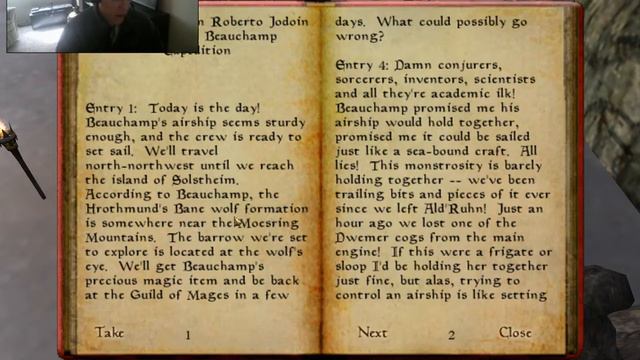 n Roberto Jodoin
Beauchamp
Expedition
Entry 1: Today is the day!
Beauchamp's airship seems sturdy
enough, and the crew is ready to
set sail. We'll travel
north-northwest until we reach
the island of Solstheim.
According to Beauchamp, the
Hrothmund's Bane wolf formation
is somewhere near the Moesring
Mountains. The barrow we're set
to explore is located at the wolf's
eye. We'll get Beauchamp's
precious magic item and be back
at the Guild of Mages in a few
Take
1
days. What could possibly go
wrong?
Entry 4: Damn conjurers,
sorcerers, inventors, scientists
and all they're academic ilk!
Beauchamp promised me his
airship would hold together,
promised me it could be sailed
just like a sea-bound craft. All
lies! This monstrosity is barely
holding together -- we've been
trailing bits and pieces of it ever
since we left Ald'Ruhn! Just an
hour ago we lost one of the
Dwemer cogs from the main
engine! If this were a frigate or
sloop I'd be holding her together
just fine, but alas, trying to
control an airship is like setting
Next
2
Close